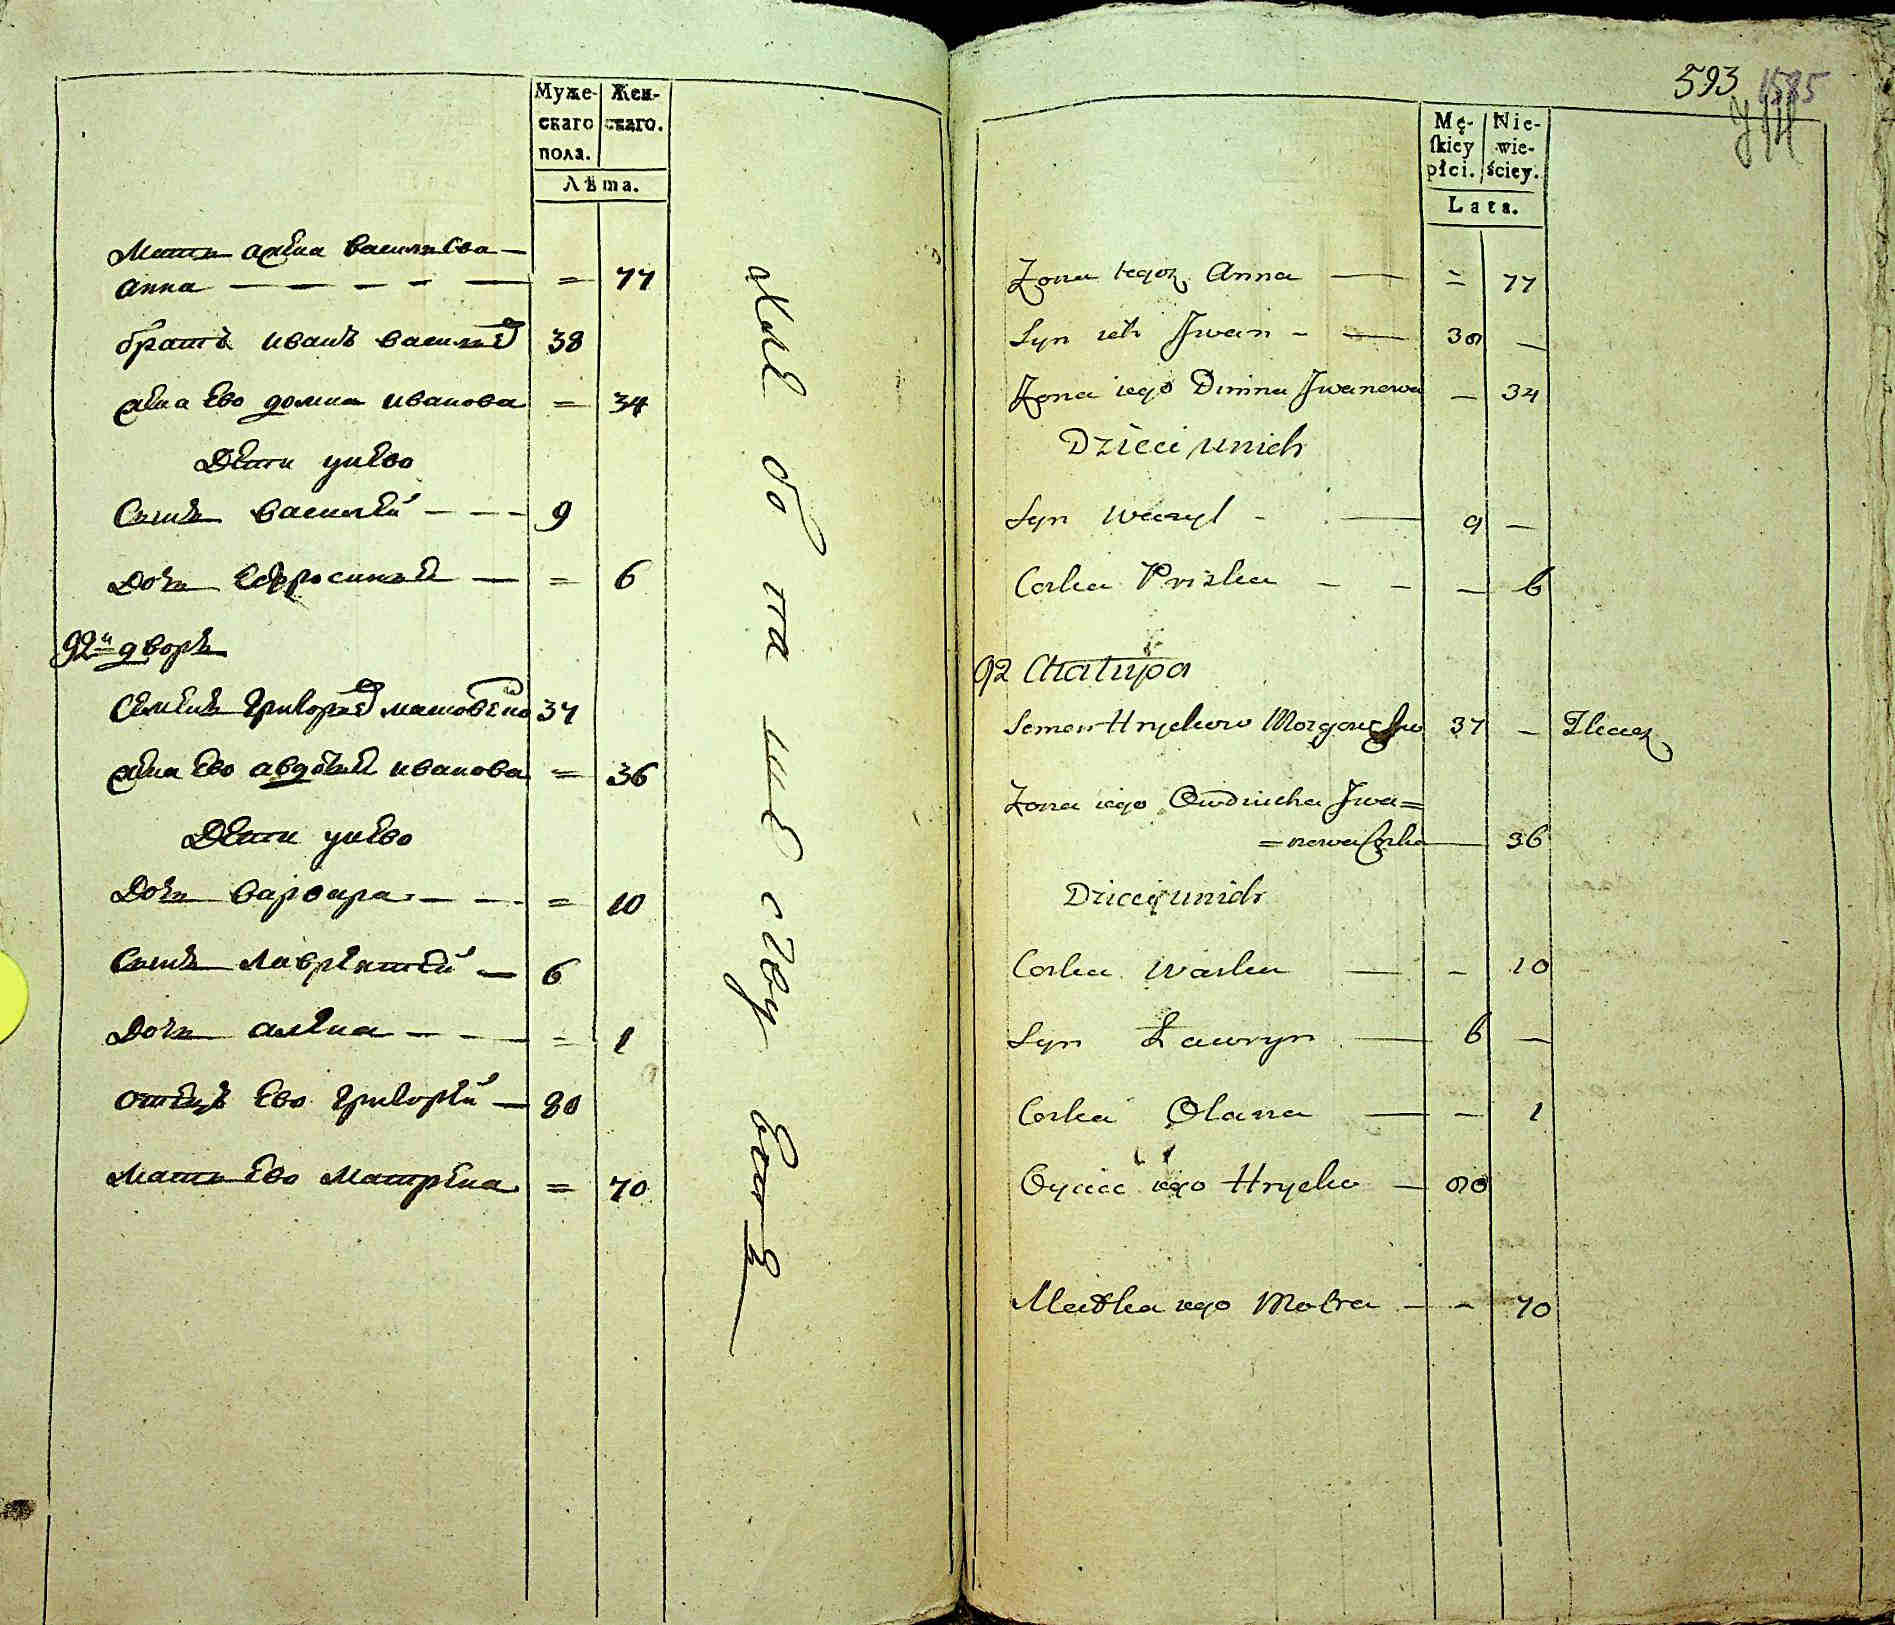 Муже-
скаго
пола.
Жен-
скаго.
Лѣта.
Мать жена василева —
Анна — — — — — = 77
братъ иванъ василев 38
жена Ево домна иванова = 34
Дети унево
Сынъ василей — — — 9
Дочь Ефросиния — = 6
92й дворъ
Семенъ григорев 37
жена Ево авдотия иванова = 36
Дети унево
Дочь варвара — — = 10
Сынъ лаврентей — 6
Дочь алена — — = 1
отецъ Ево григорей — 80
Мать Ево Матрена = 70
593 1585
Mę-
skiey
płci.
Nie-
wie-
ściey.
Lata.
Żona tegoż Anna — = 77
Syn ich Jwan — — 38 —
Żona iego Dmina Jwanowa — 34
Dzieci unich
Syn Wasyl — — 9 —
Corka Priska — — — 6
92 Chałupa
Semen Hryckow 37 — Tkacz
Żona iego Owdiucha Jwa=
=nowa Corka — 36
Dzieci unich
Corka Warka — — 10
Syn Ławryn — 6 —
Corka Olana — — 1
Oyciec iego Hrycko — 80
Matka iego Motra — — 70